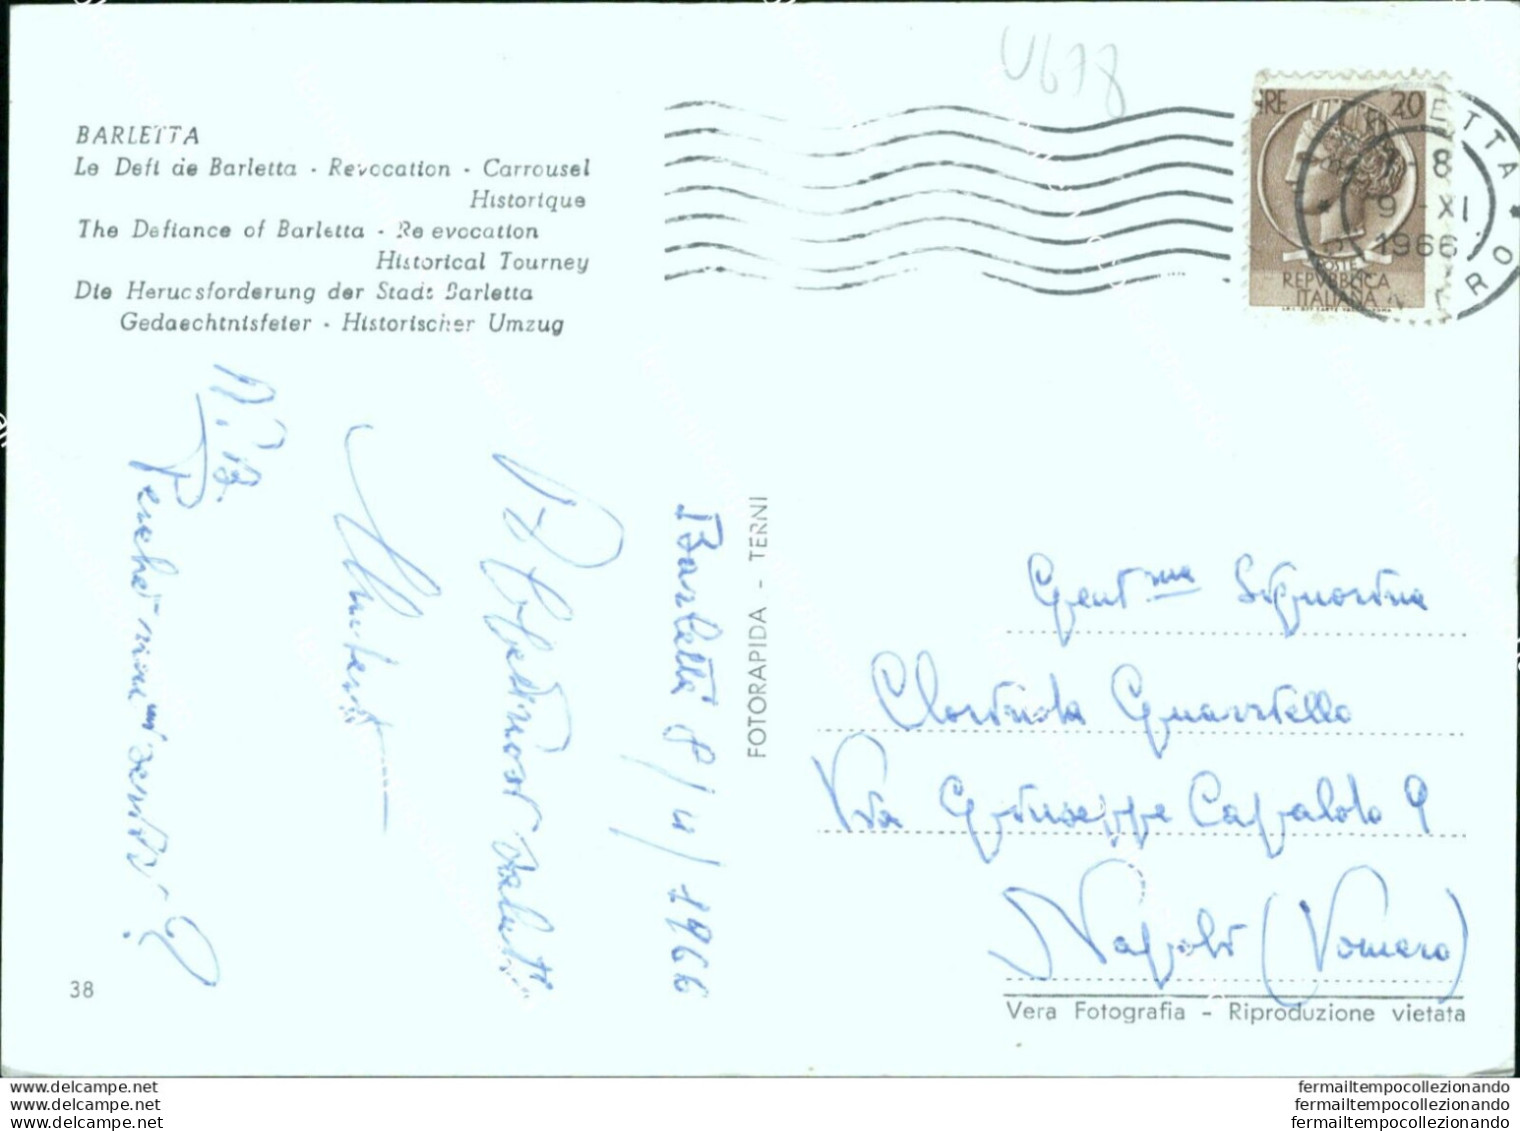 U678
BARLETTA
Le Defi de Barletta - Revocation - Carrousel
Historique
The Defiance of Barletta - Re evocation
Historical Tourney
Die Herucsforderung der Stadt Barletta
Gedaechtnisfeier - Historischer Umzug
IRE 20
POSTE
REPVBBLICA
ITALIANA
BARLETTA CENTRO
- 8
9 - XI
1966
Barletta 8/11/1966
Affettuosi saluti
Umberto
N.B.
Perché non mi scrivi?
FOTORAPIDA - TERNI
Gent.ma Signorina
Clorinda Guarriello
Via Giuseppe Capaldo 9
Napoli (Vomero)
38
Vera Fotografia - Riproduzione vietata
www.delcampe.net
www.delcampe.net
www.delcampe.net
fermailtempocollezionando
fermailtempocollezionando
fermailtempocollezionando